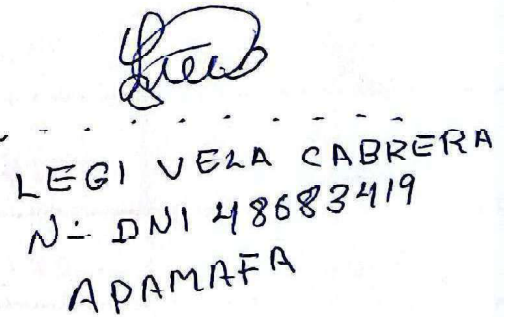 LEGI VELA CABRERA
N:- DNI 48683419
APAMAFA